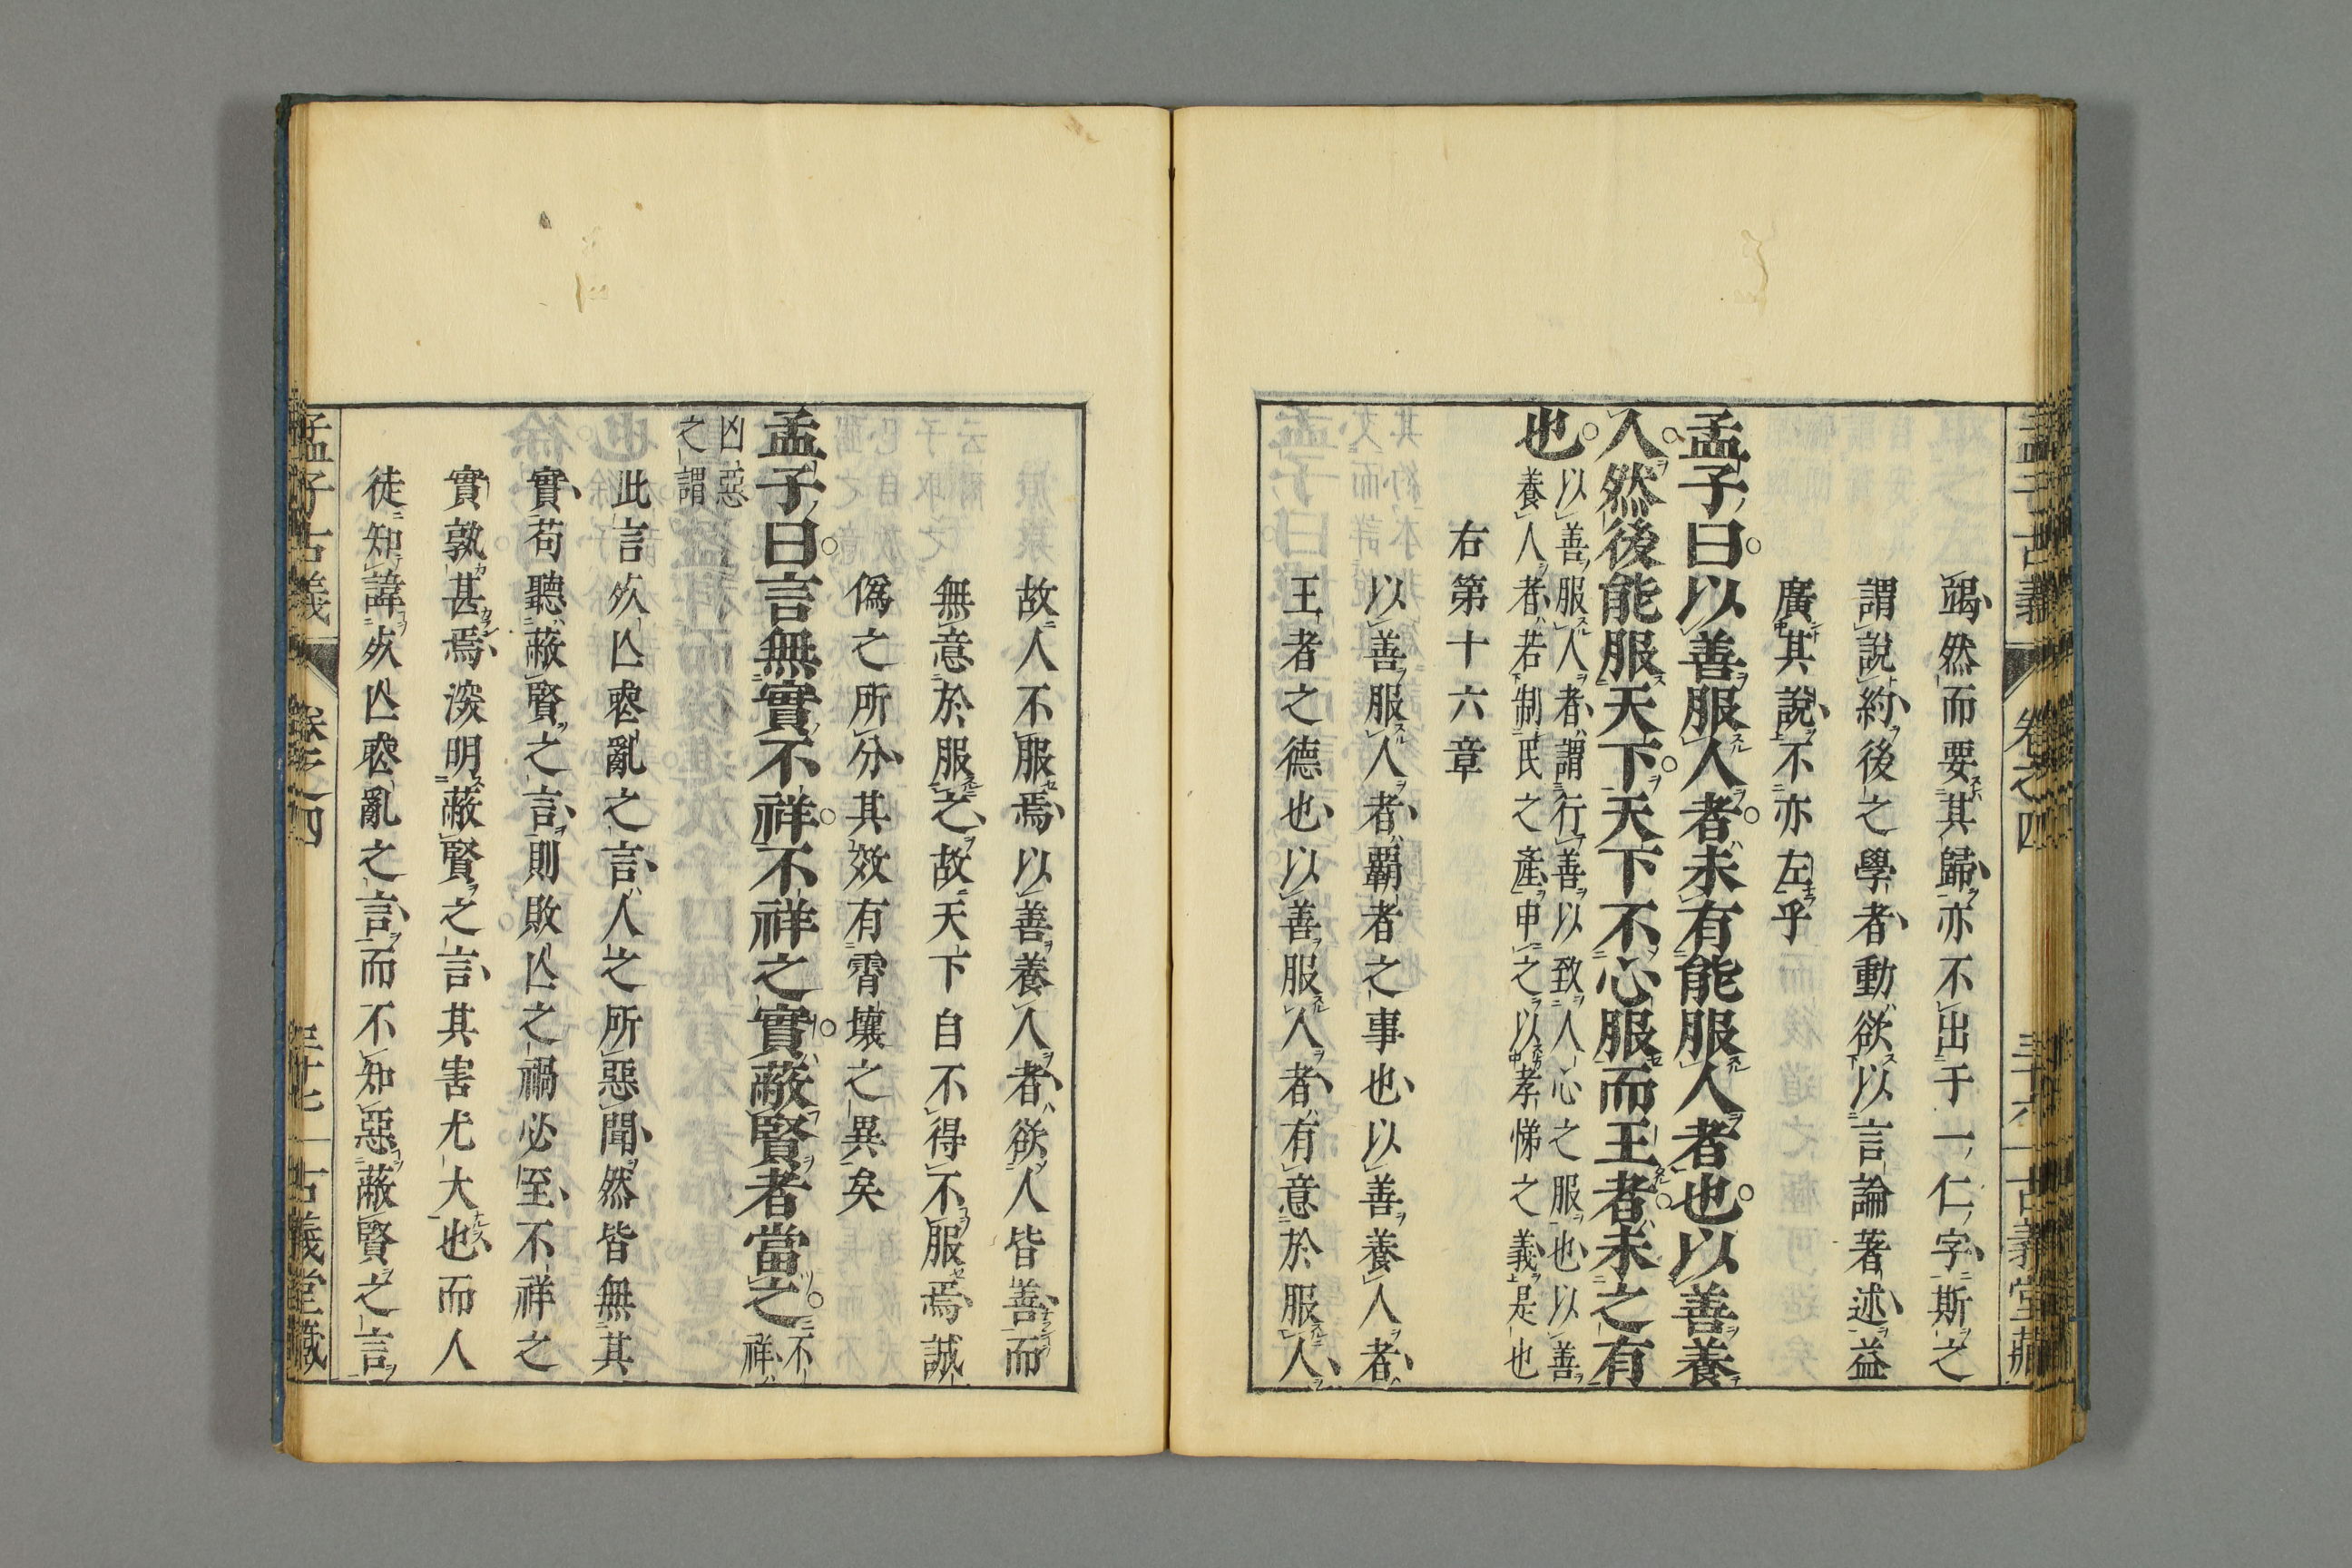 孟子古義 卷之四 三十六 古義堂藏
竭然而要其歸亦不出于一仁字斯之
謂說約後之學者動欲以言論著述益
廣其說不亦左乎
孟子曰以善服人者未有能服人者也以善養
人然後能服天下天下不心服而王者未之有
也
以善服人者謂行善以致人心之服也以善
養人者若制民之產申之以孝悌之義是也
右第十六章
以善服人者覇者之事也以善養人者
王者之德也以善服人者有意於服人
故人不服焉以善養人者欲人皆善而
無意於服之故天下自不得不服焉誠
偽之所分其效有霄壤之異矣
孟子曰言無實不祥不祥之實蔽賢者當之
不祥
凶惡
之謂
此言死亾喪亂之言人之所惡聞然皆無其
實苟聽蔽賢之言則敗亾之禍必至不祥之
實孰甚焉深明蔽賢之言其害尤大也而人
徒知諱死亾喪亂之言而不知惡蔽賢之言
孟子古義 卷之四 三十七 古義堂藏